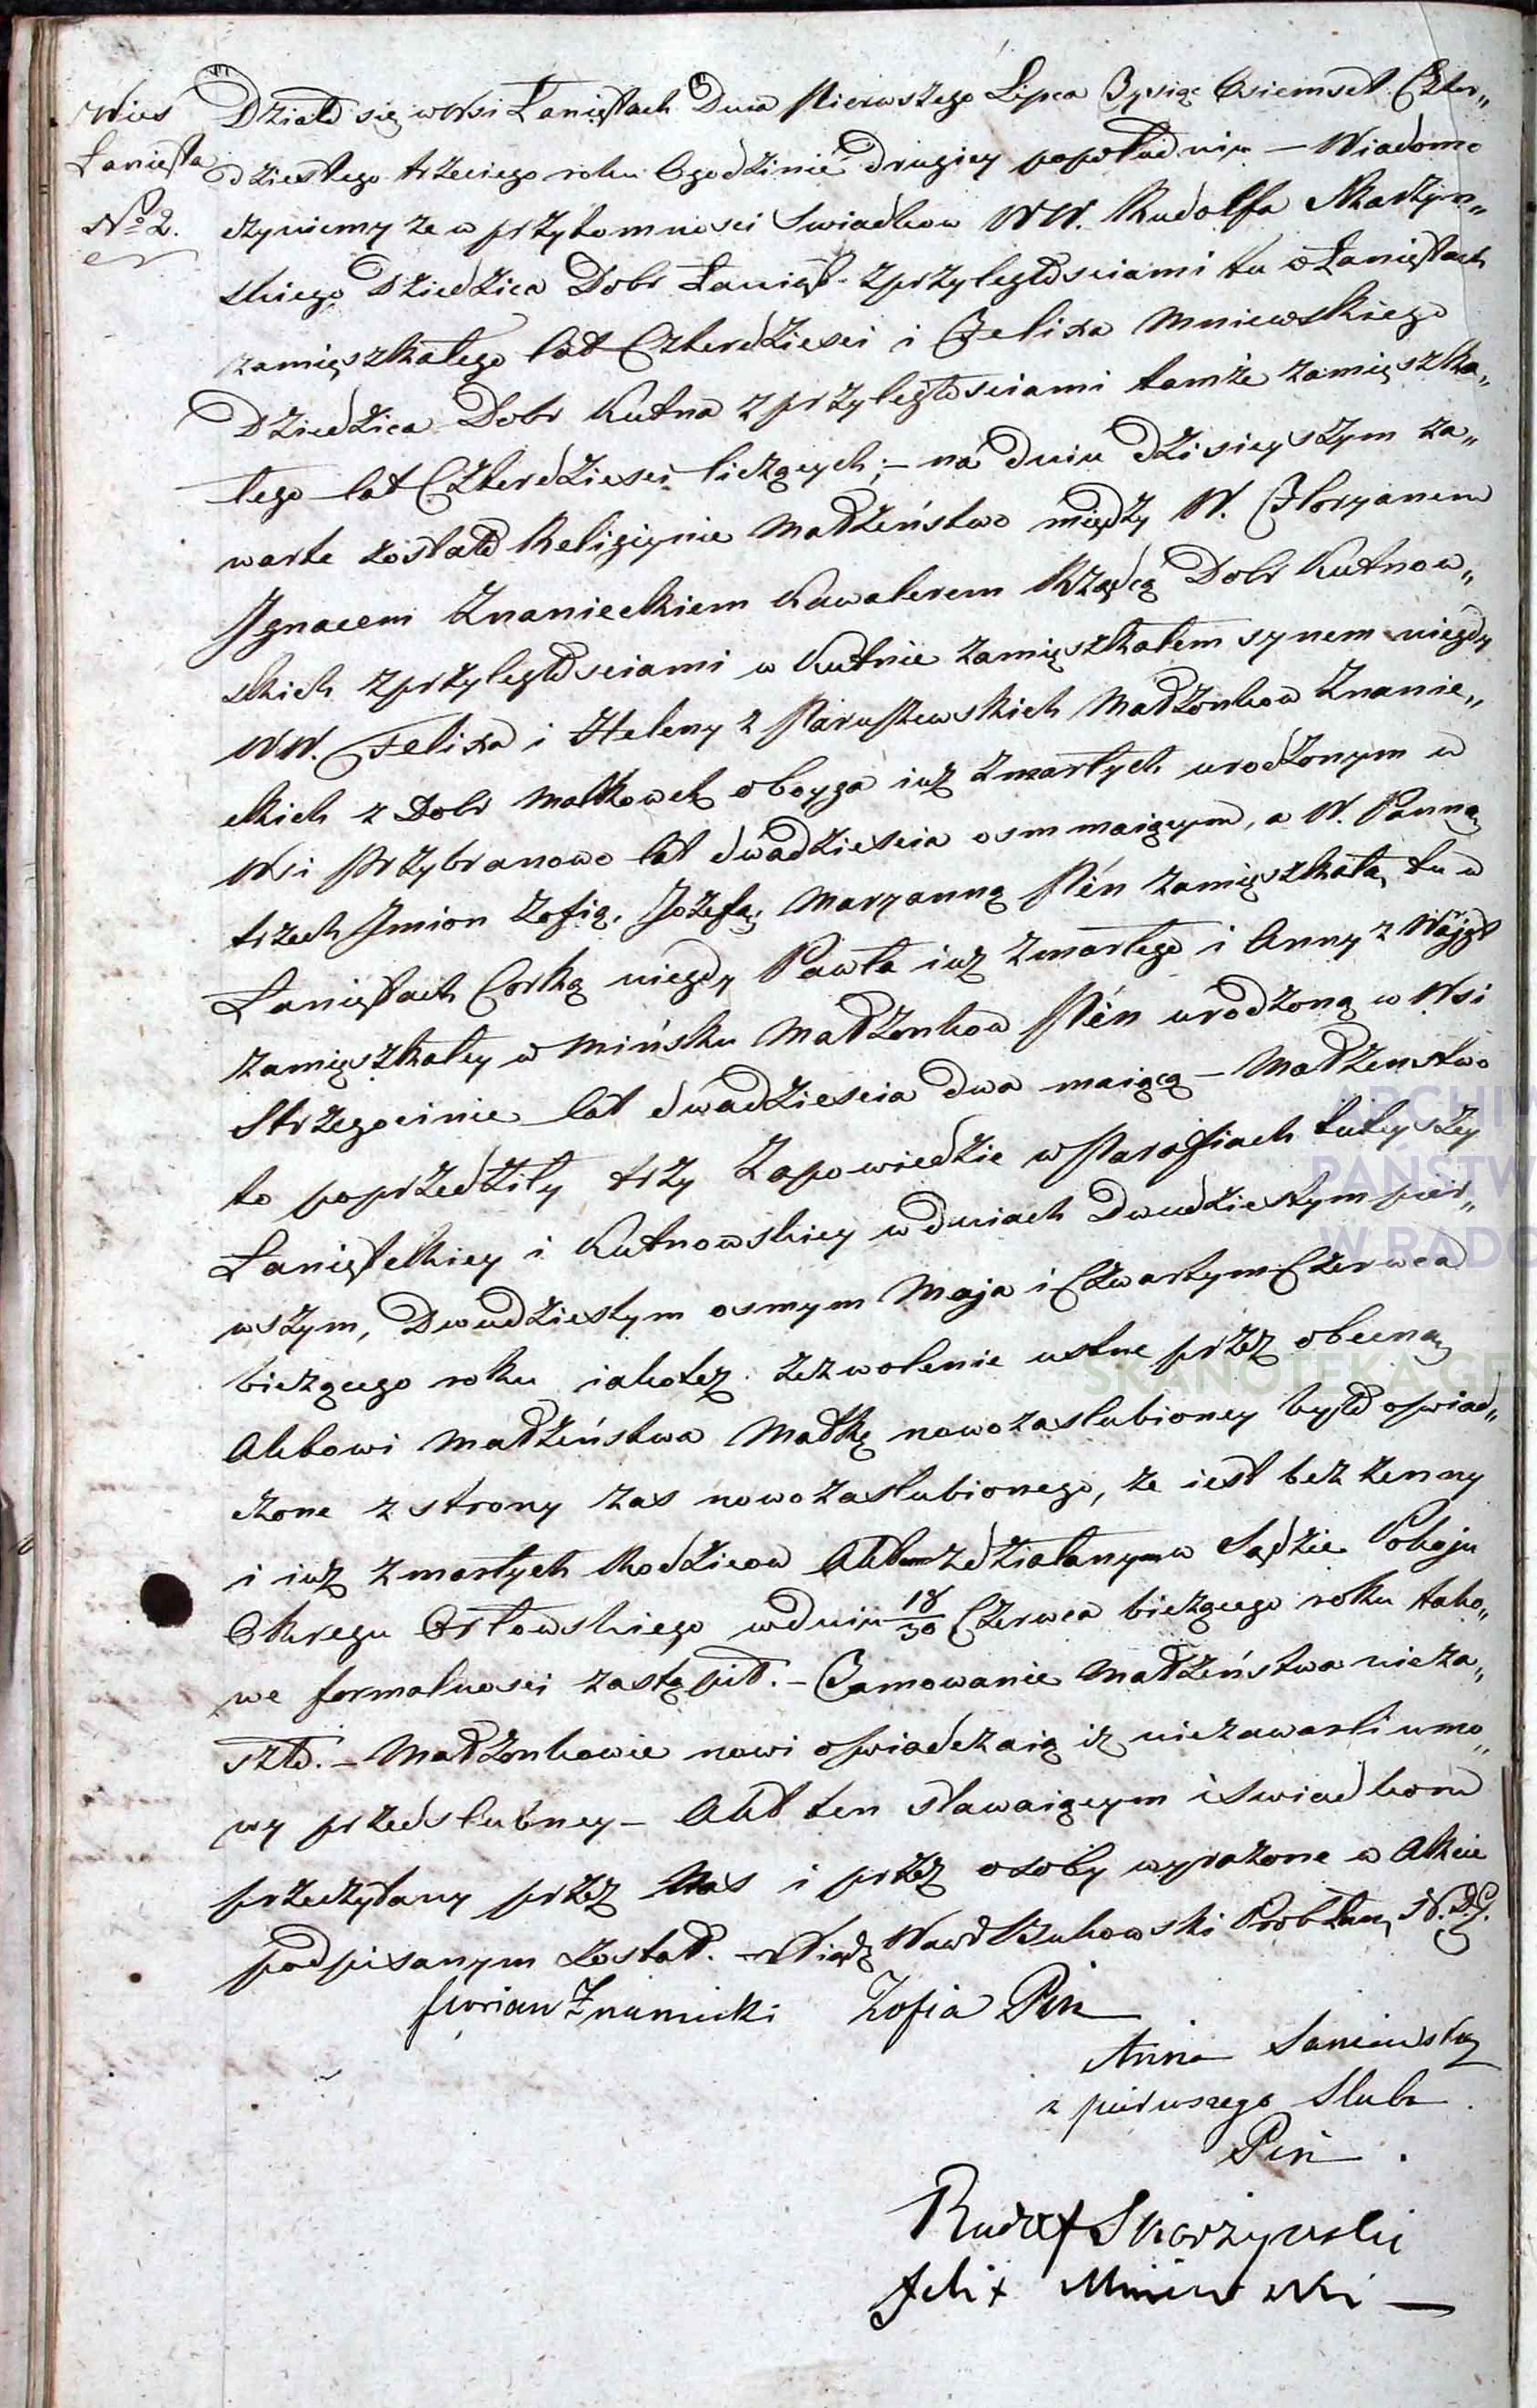 Wieś
Łanięta
No 2.
Działo się w Wsi Łaniętach Dnia Pierwszego Lipca Tysiąc Osiemset Czter„
dziestego trzeciego roku o godzinie drugiey popołudniu — Wiadomo
czyniemy że w przytomnosci Swiadkow WW. Rudolfa Skarzyn„
skiego Dziedzica Dobr Łanięt z przyległosciami tu w Łaniętach
zamięszkałego lat Czterdziesci i Felixa Mniewskiego
Dziedzica Dobr Kutna z przyległosciami tamże zamięszka„
łego lat Czterdziesci liczących; – na dniu dzisieyszym za„
warte zostało Religiynie Małżeństwo między W. Floryanem
Ignacem Znanieckiem Kawalerem Rządcą Dobr Kutnow„
skich z przyległosciami w Kutnie zamięszkałem synem niegdy
WW. Felixa i Heleny z Paruszewskich Małżonkow Znanie„
ckich z Dobr obojga iuż zmarłych urodzonym w
Wsi Przybranowo lat dwadziescia osm maiącym, a W. Panną
trzech Imion Zofią, Jozefą, Maryanną Pén zamięszkałą tu w
Łaniętach Corką niegdy Pawła iuż zmarłego i Anny z
zamięszkałey w Mińsku Małżonkow Pén urodzoną w Wsi
Strzegocinie lat dwadziescia dwa maiącą – Małżenstwo
to poprzedziły trzy Zapowiedzie w Parafiach tuteyszey
Łanięteckiey i Kutnowskiey w dniach Dwudziestym pier„
wszym, Dwudziestym osmym Maja i Czwartym Czerwca
bieżącego roku iakoteż zezwolenie ustne przez obecną
Aktowi Małżeństwa Matkę nowozaslubioney było oswiad„
czone z strony zas nowozaslubionego, że iest bez żenny
i iuż zmarłych Rodzicow Aktem zdziałanym w Sądzie Pokoju
Okregu Orłowskiego w dniu 18/30 Czerwca bieżącego roku tako„
we formalnosci zastąpił. – Tamowanie Małżeństwa nieza„
szło. – Małżonkowie nowi oswiadczaią iż niezawarli umo„
wy przedslubney – Akt ten stawaiącym i Swiadkom
przeczytany przez Nas i przez osoby wyrażone w Akcie
podpisanym został. – Xiądz Wawd Bukowski
Floryan Znaniecki Zofia Pin
Anna
z pierwszego Slubu
Pin.
Rudolf Skarżyński
Felix Mniewski —
ARCHIW
PAŃSTW
W RADO
SKANOTEKA GEN